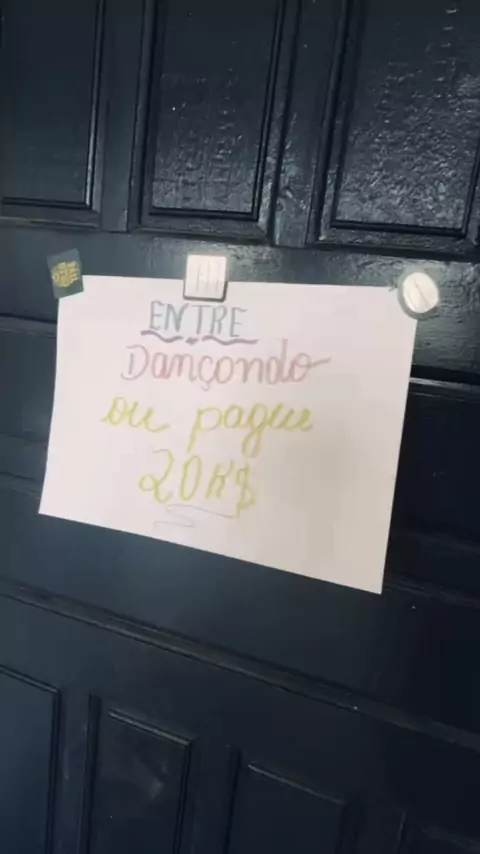 ENTRE
Dançondo
ou pague
20R$